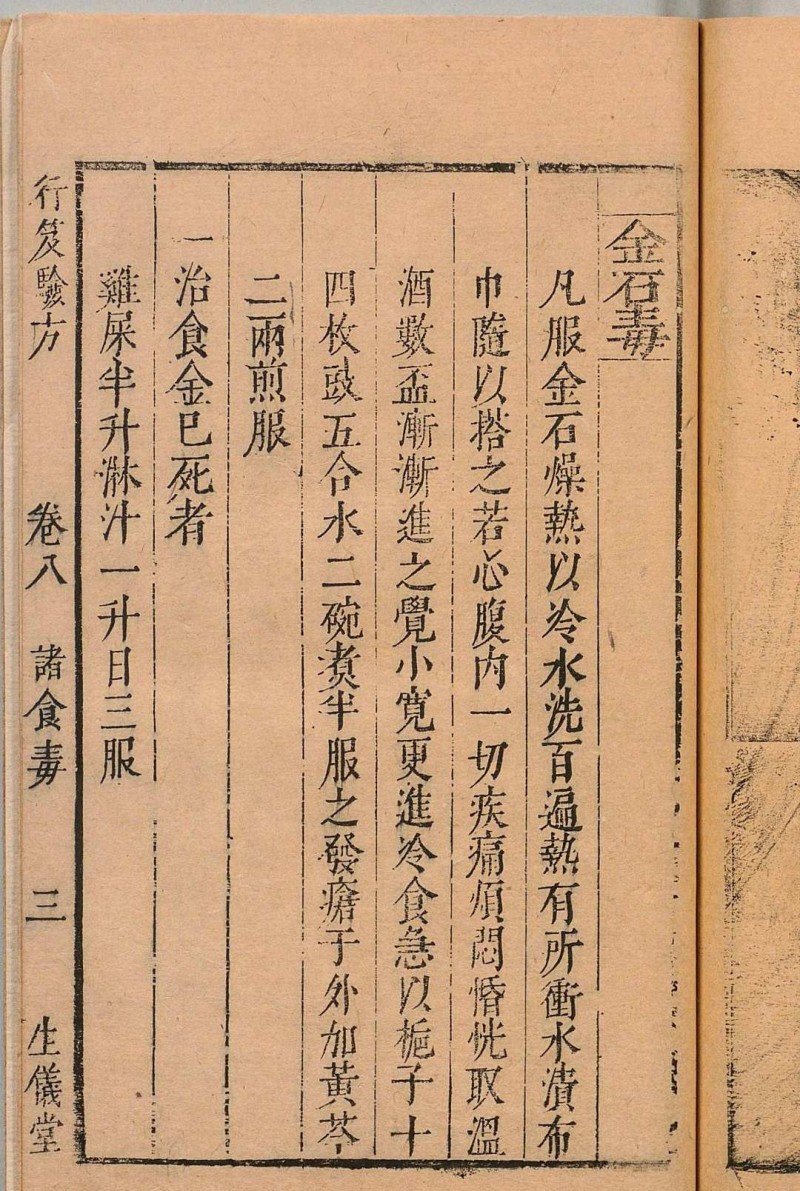 金石毒
凡服金石燥熱以冷水洗百遍熱有所衝水漬布
巾隨以搭之若心腹内一切疾痛煩悶惛恍取溫
酒數盃漸漸進之覺小寬更進冷食急以梔子十
四枚豉五合水二碗煑半服之發瘡于外加黃芩
二兩煎服
一治食金已死者
雞屎半升淋汁一升日三服
行笈驗方 卷八 諸食毒 三 生儀堂